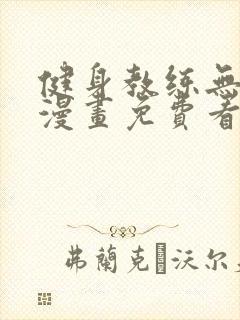 健身教練無
漫畫免費看
弗蘭克·沃尔